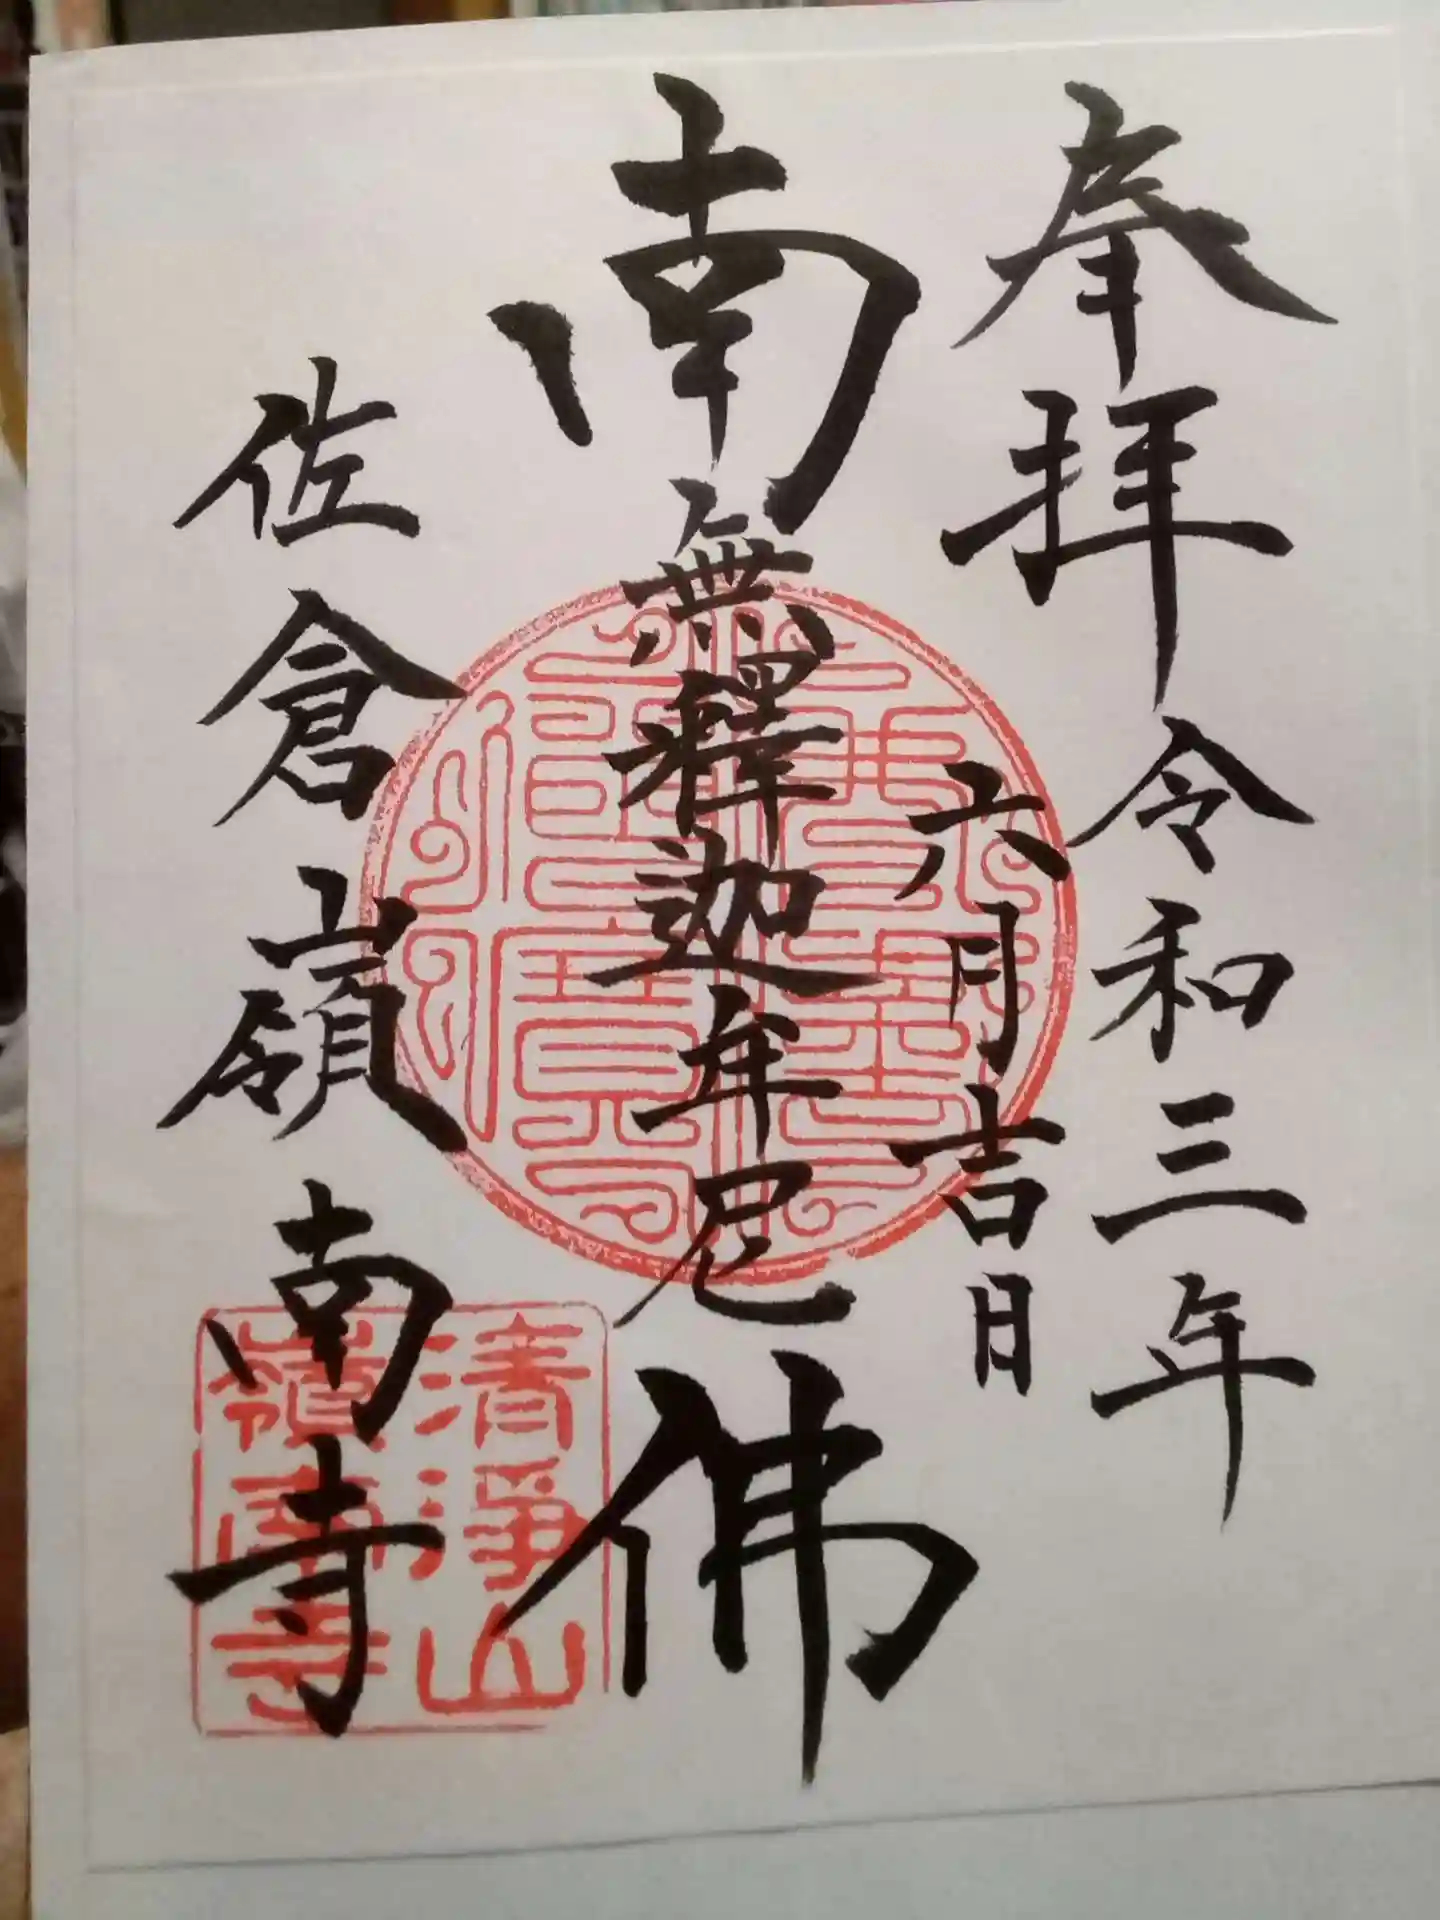 奉拝 令和三年
六月吉日
南無釋迦牟尼佛
佐倉 嶺南寺
清浄山
嶺南寺